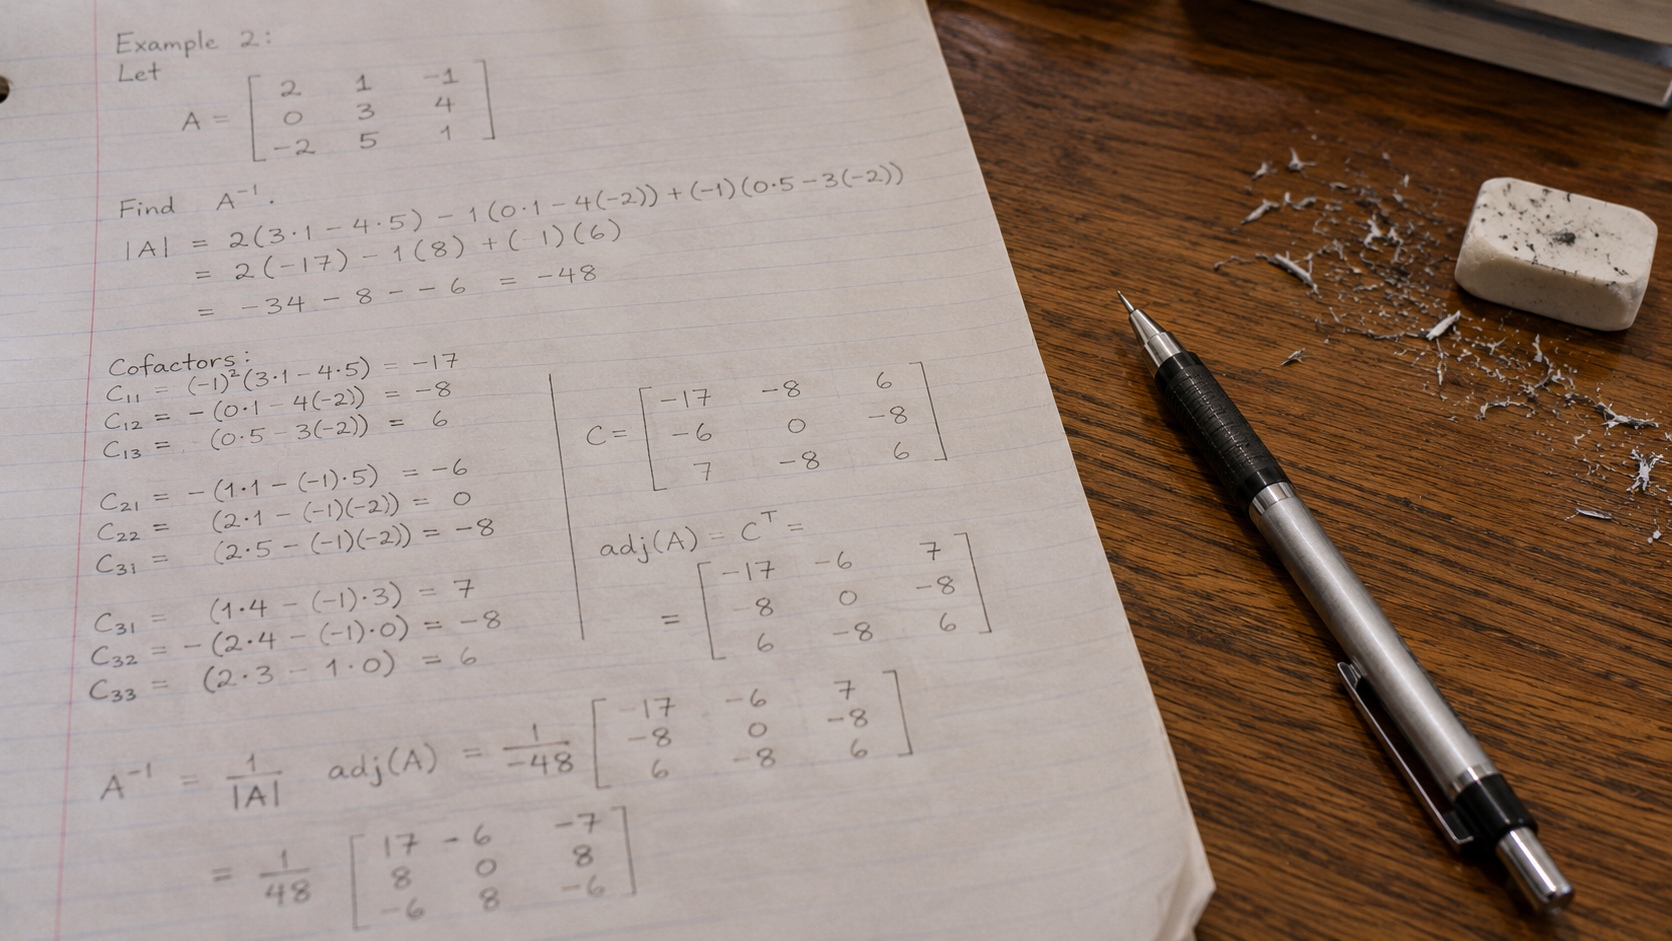 Example 2:
Let
A = [ 2 1 -1
0 3 4
-2 5 1 ]
Find A⁻¹.
|A| = 2(3·1 - 4·5) - 1(0·1 - 4(-2)) + (-1)(0·5 - 3(-2))
= 2(-17) - 1(8) + ( 1)(6)
= -34 - 8 - - 6 = -48
Cofactors:
C₁₁ = (-1)²(3·1 - 4·5) = -17
C₁₂ = -(0·1 - 4(-2)) = -8
C₁₃ = (0·5 - 3(-2)) = 6
C₂₁ = -(1·1 - (-1)·5) = -6
C₂₂ = (2·1 - (-1)(-2)) = 0
C₃₁ = (2·5 - (-1)(-2)) = -8
C₃₁ = (1·4 - (-1)·3) = 7
C₃₂ = -(2·4 - (-1)·0) = -8
C₃₃ = (2·3 - 1·0) = 6
C = [ -17 -8 6
-6 0 -8
7 -8 6 ]
adj(A) = Cᵀ =
= [ -17 -6 7
-8 0 -8
6 -8 6 ]
A⁻¹ = 1/|A| adj(A) = 1/-48 [ -17 -6 7
-8 0 -8
6 -8 6 ]
= 1/48 [ 17 -6 -7
8 0 8
-6 8 -6 ]